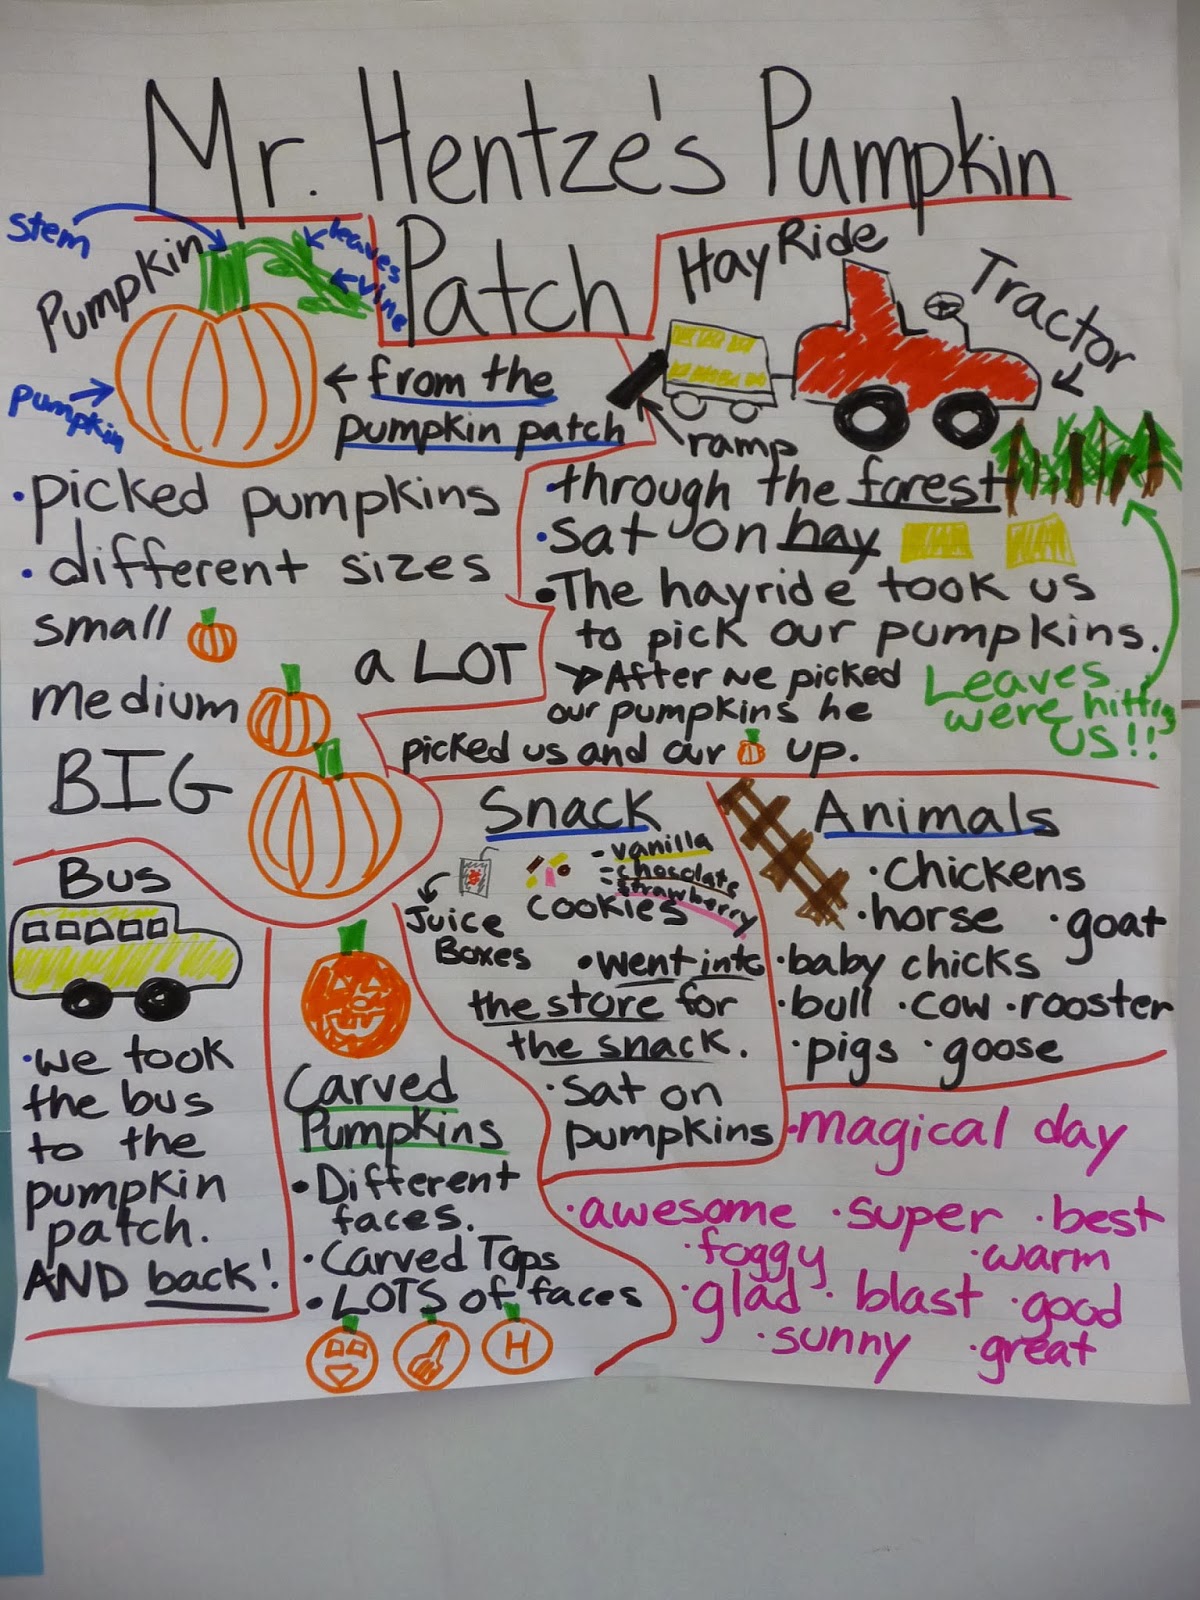 Mr. Hentze's Pumpkin
Patch
stem
Pumpkin
leaves
vine
pumpkin
from the
pumpkin patch
• picked pumpkins
• different sizes
small
medium
BIG
a LOT
Hay Ride
Tractor
ramp
• through the forest
• sat on hay
• The hayride took us
to pick our pumpkins.
➤ After we picked
our pumpkins he
picked us and our up.
Leaves
were hitting
us!!
Bus
• we took
the bus
to the
pumpkin
patch.
AND back!
Carved
Pumpkins
• Different
faces.
• Carved Tops
• LOTS of faces
H
Snack
- vanilla
- chocolate
- strawberry
cookies
Juice
Boxes
• went into
the store for
the snack.
• sat on
pumpkins
Animals
• chickens
• horse • goat
• baby chicks
• bull • cow • rooster
• pigs • goose
• magical day
• awesome • super • best
• foggy • warm
• glad • blast • good
• sunny • great